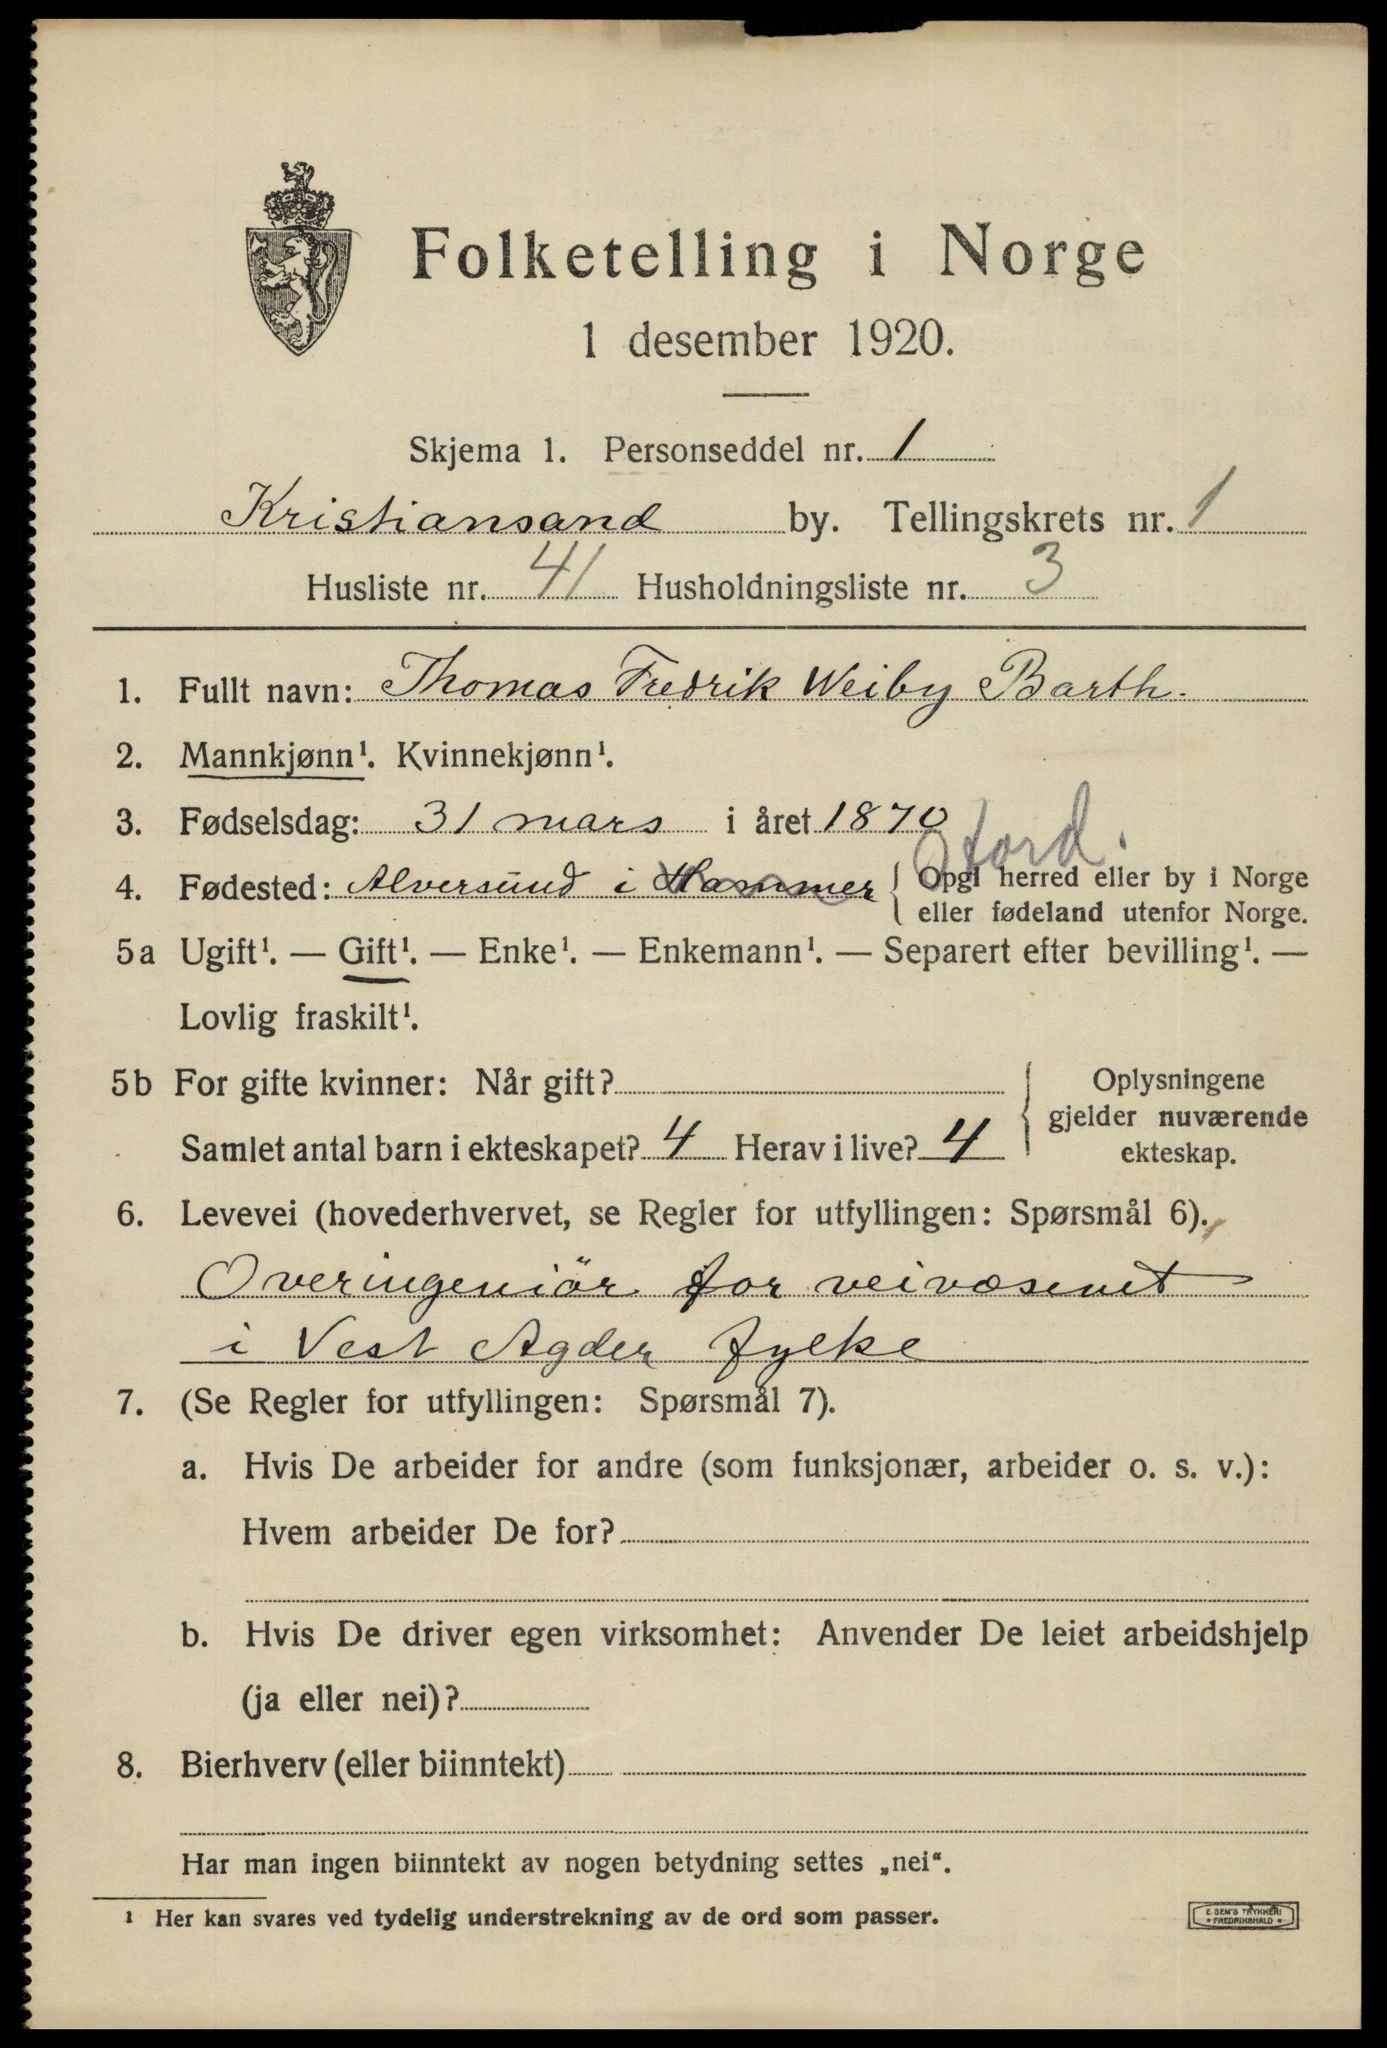 Folketelling i Norge
1 desember 1920.
Skjema 1. Personseddel nr. 1
Kristiansand by. Tellingskrets nr. 1
Husliste nr. 41 Husholdningsliste nr. 3
1. Fullt navn: Thomas Fredrik Weiby Barth.
2. Mannkjønn¹. Kvinnekjønn¹.
3. Fødselsdag: 31 mars i året 1870
4. Fødested: Alversund i Hammer { Opgi herred eller by i Norge
eller fødeland utenfor Norge.
5a Ugift¹. — Gift¹. — Enke¹. — Enkemann¹. — Separert efter bevilling¹. —
Lovlig fraskilt¹.
5b For gifte kvinner: Når gift?
Samlet antal barn i ekteskapet? 4 Herav i live? 4
Oplysningene
gjelder nuværende
ekteskap.
6. Levevei (hovederhvervet, se Regler for utfyllingen: Spørsmål 6).
Overingeniör for veivæsenet
i Vest Agder fylke
7. (Se Regler for utfyllingen: Spørsmål 7).
a. Hvis De arbeider for andre (som funksjonær, arbeider o. s. v.):
Hvem arbeider De for?
b. Hvis De driver egen virksomhet: Anvender De leiet arbeidshjelp
(ja eller nei)?
8. Bierhverv (eller biinntekt)
Har man ingen biinntekt av nogen betydning settes „nei“.
¹ Her kan svares ved tydelig understrekning av de ord som passer.
E. SEM'S TRYKKERI
* FREDRIKSHALD *